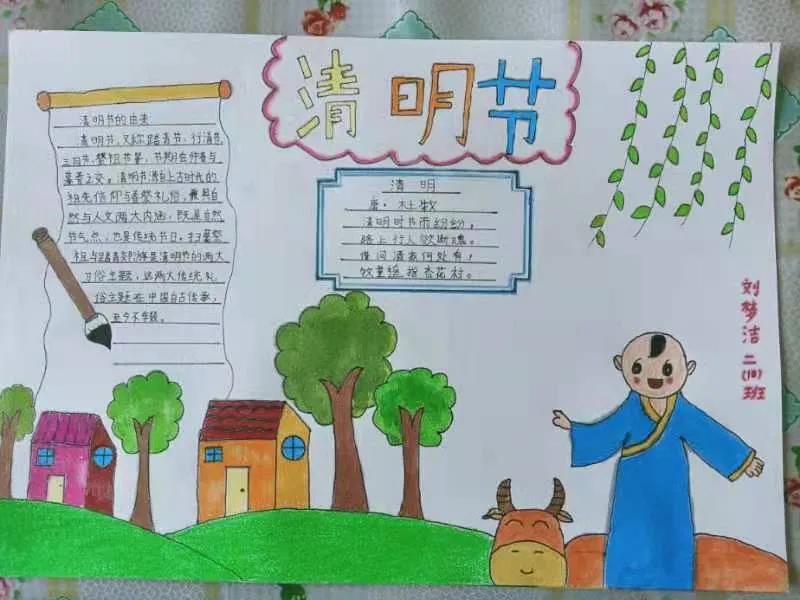 清明节
清明节的由来
清明节,又称踏青节,行清节,
三月节,祭祖节等,节期在仲春与
暮春之交。清明节源自上古时代的
祖先信仰与春祭礼俗,兼具自
然与人文两大内涵,既是自然
节气点,也是传统节日。扫墓祭
祖与踏青郊游是清明节的两大
习俗主题,这两大传统礼
俗主题在中国自古传承,
至今不辍。
清明
唐·杜牧
清明时节雨纷纷,
路上行人欲断魂。
借问酒家何处有,
牧童遥指杏花村。
刘梦洁 二(10)班